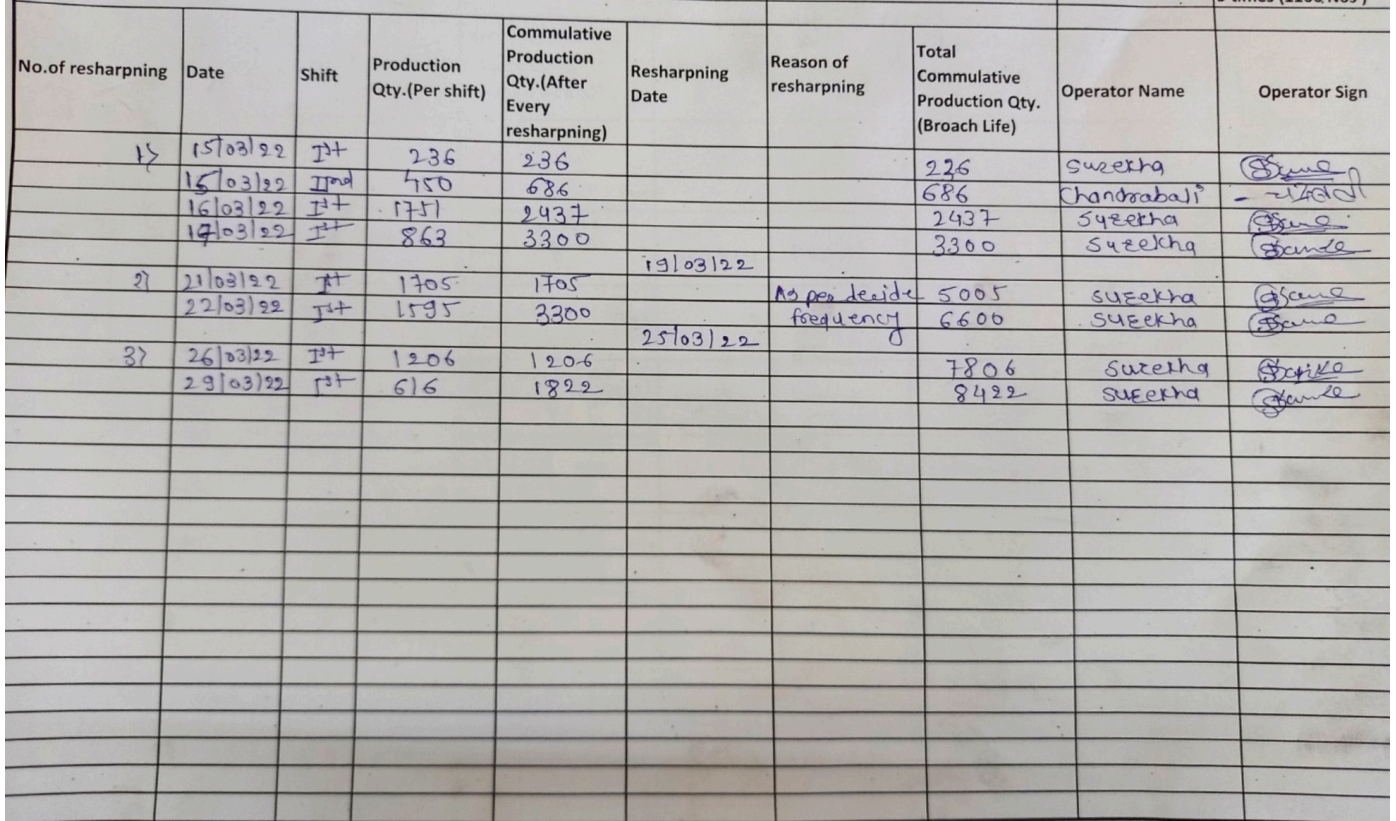 No.of resharpning Date Shift Production Qty.(Per shift) Commulative Production Qty.(After Every resharpning) Resharpning Date Reason of resharpning Total Commulative Production Qty. (Broach Life) Operator Name Operator Sign
1) 15/03/22 Ist 236 236 236 Surekha
15/03/22 IInd 450 686 686 Chandrabali
16/03/22 Ist 1751 2437 2437 Surekha
17/03/22 Ist 863 3300 3300 Surekha
19/03/22
2) 21/03/22 Ist 1705 1705 As per decide 5005 Surekha
22/03/22 Ist 1595 3300 frequency 6600 Surekha
25/03/22
3) 26/03/22 Ist 1206 1206 7806 Surekha
29/03/22 Ist 616 1822 8422 Surekha